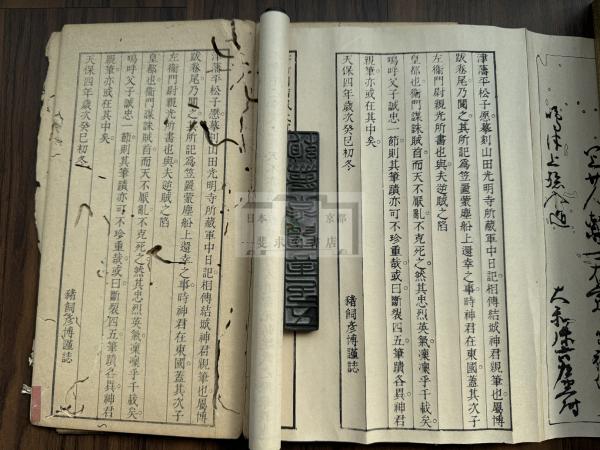 津藩平松子愿摹刻山田光明寺所藏軍中日記相傳結城神君親筆也屬博
跋卷尾乃閱之其所記爲笠置蒙塵船上還幸之事時神君在東國蓋其次子
左衞門尉親光所書也與夫逆賊之陷
皇都也衞門謀誅賊首而天不厭亂不克死之然其忠烈英氣凜凜乎千載矣
嗚呼父子誠忠一節則其筆蹟亦可不珍重哉或曰斷裂四五筆蹟各異神君
親筆亦或在其中矣
天保四年歲次癸巳初冬
豬飼彥博謹誌
津藩平松子愿摹刻山田光明寺所藏軍中日記相傳結城神君親筆也屬博
跋卷尾乃閱之其所記爲笠置蒙塵船上還幸之事時神君在東國蓋其次子
左衞門尉親光所書也與夫逆賊之陷
皇都也衞門謀誅賊首而天不厭亂不克死之然其忠烈英氣凜凜乎千載矣
嗚呼父子誠忠一節則其筆蹟亦可不珍重哉或曰斷裂四五筆蹟各異神君
親筆亦或在其中矣
天保四年歲次癸巳初冬
豬飼彥博謹誌
日本 京都
斐求書店